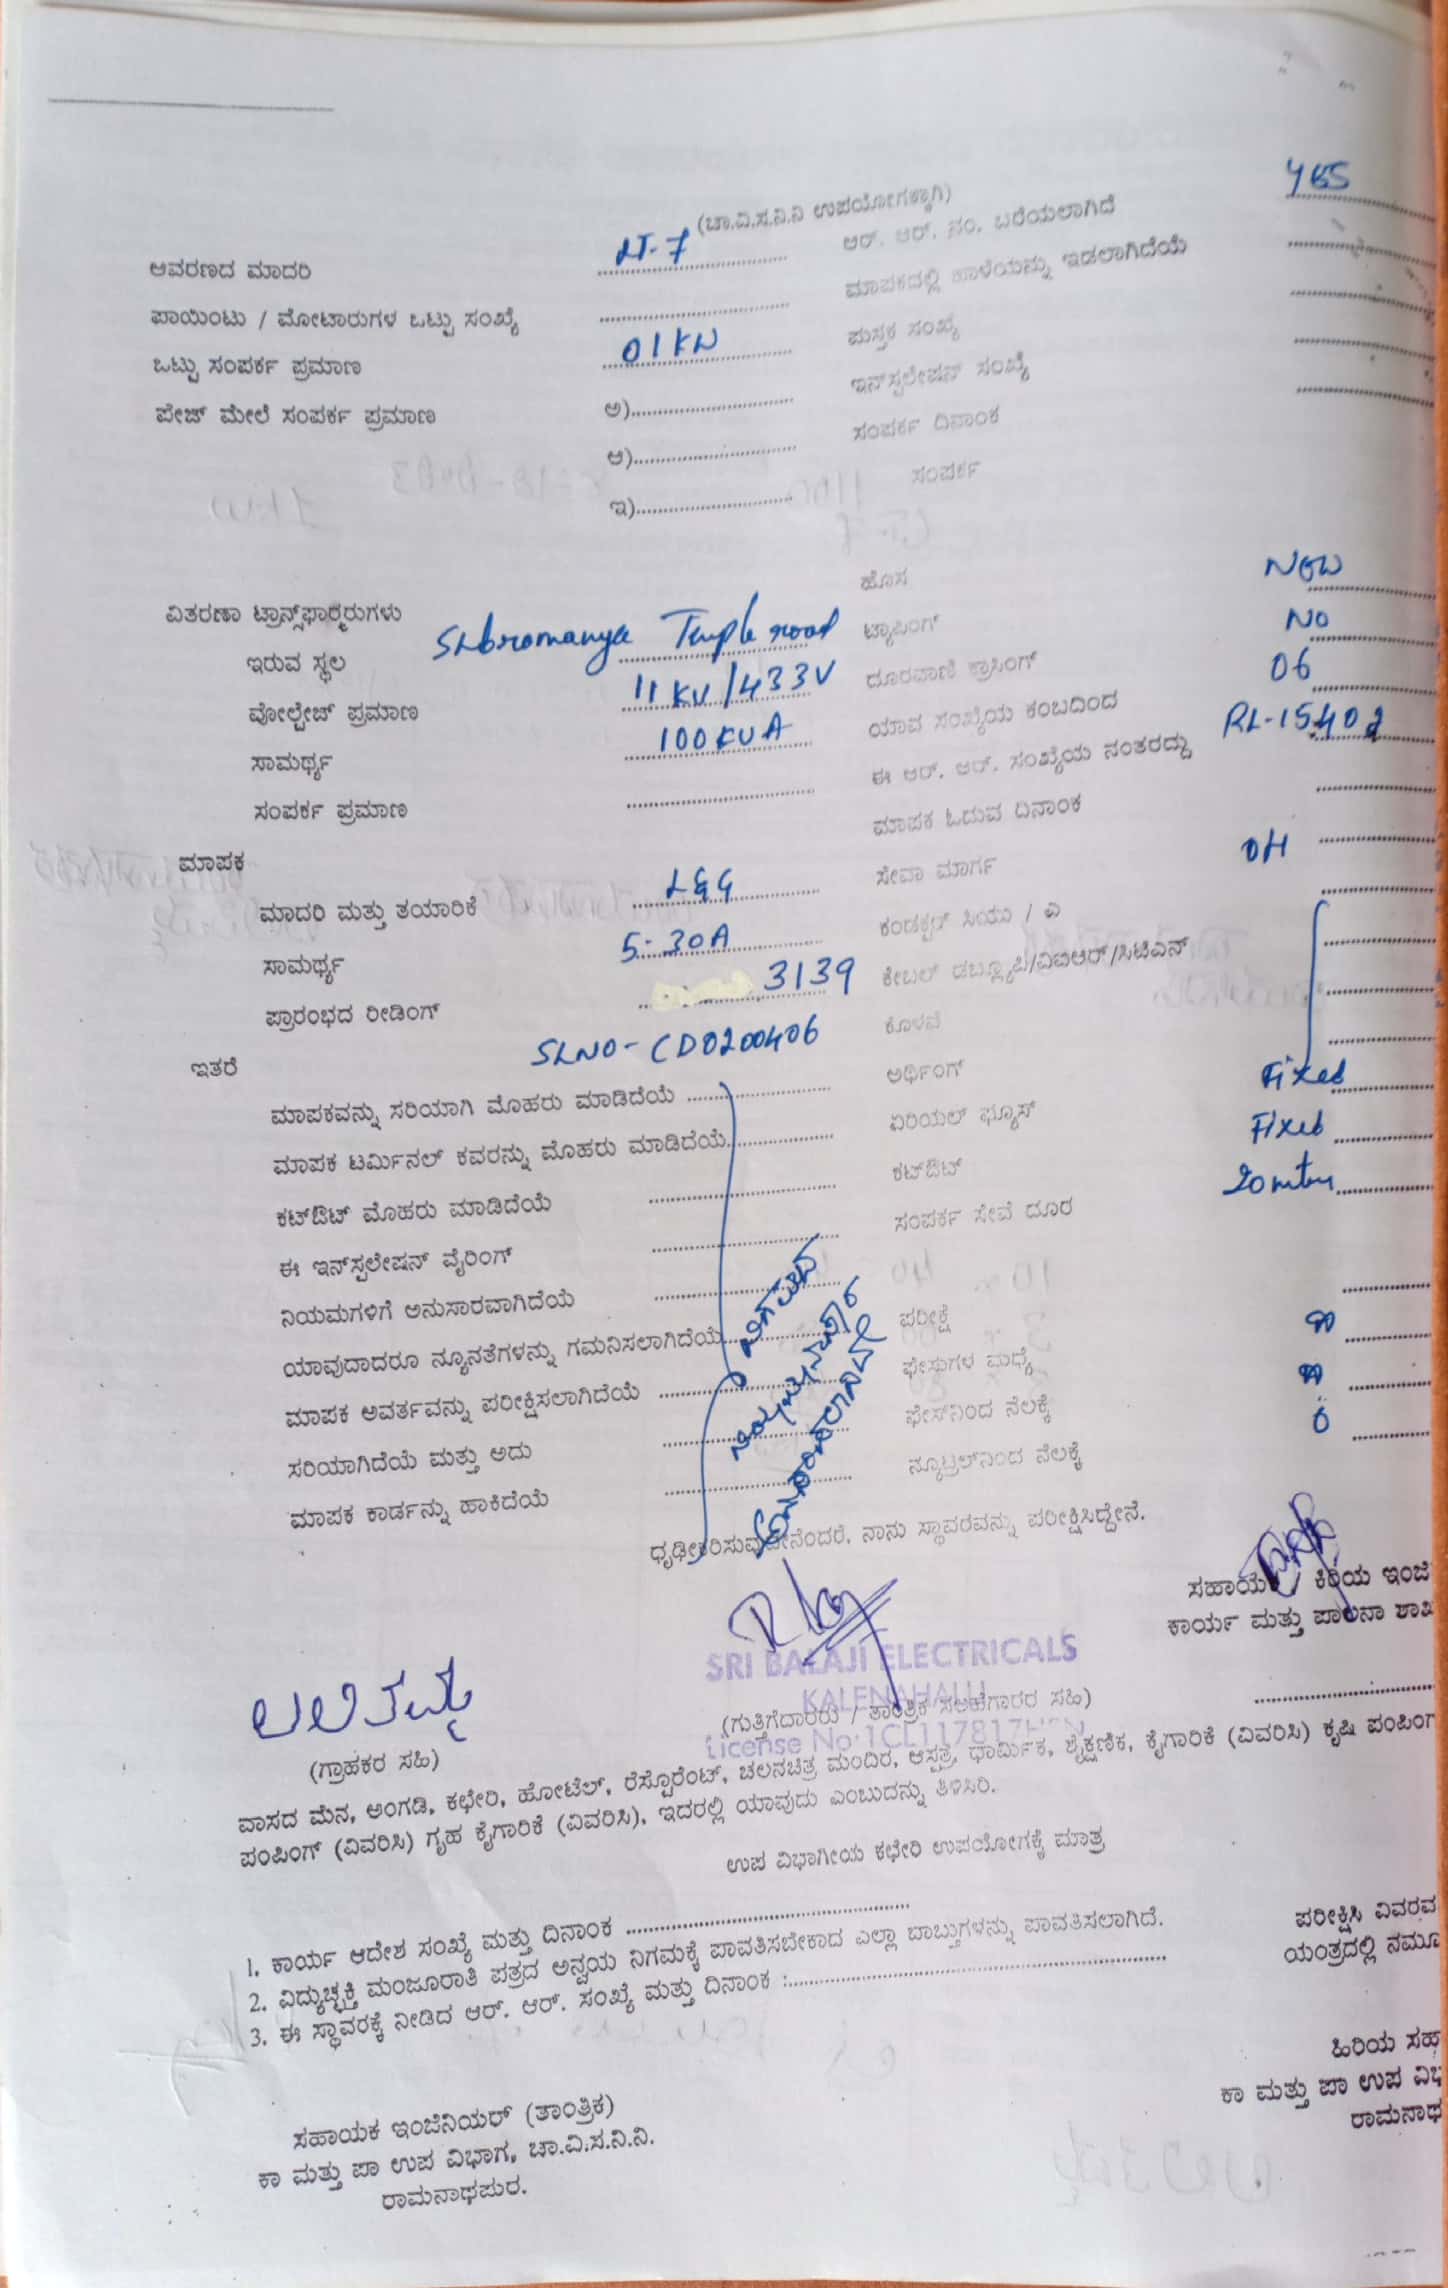 (ಚಾ.ವಿ.ಸ.ನಿ.ನಿ ಉಪಯೋಗಕ್ಕಾಗಿ)
ಆವರಣದ ಮಾದರಿ LT-7 ಆರ್. ಆರ್. ನಂ. ಬರೆಯಲಾಗಿದೆ yes
ಪಾಯಿಂಟು / ಮೋಟಾರುಗಳ ಒಟ್ಟು ಸಂಖ್ಯೆ ಮಾಪಕದಲ್ಲಿ ಹಾಳೆಯನ್ನು ಇಡಲಾಗಿದೆಯೆ
ಒಟ್ಟು ಸಂಪರ್ಕ ಪ್ರಮಾಣ 01 KW ಪುಸ್ತಕ ಸಂಖ್ಯೆ
ಪೇಜ್ ಮೇಲೆ ಸಂಪರ್ಕ ಪ್ರಮಾಣ ಅ) ಇನ್‌ಸ್ಟಲೇಷನ್ ಸಂಖ್ಯೆ
ಆ) ಸಂಪರ್ಕ ದಿನಾಂಕ
ಇ) ಸಂಪರ್ಕ
ವಿತರಣಾ ಟ್ರಾನ್ಸ್‌ಫಾರ್ಮರುಗಳು ಹೊಸ New
ಇರುವ ಸ್ಥಲ Subromanya Temple road ಟ್ಯಾಪಿಂಗ್ No
ವೋಲ್ಟೇಜ್ ಪ್ರಮಾಣ 11 KV/433V ದೂರವಾಣಿ ಕ್ರಾಸಿಂಗ್ 06
ಸಾಮರ್ಥ್ಯ 100 KVA ಯಾವ ಸಂಖ್ಯೆಯ ಕಂಬದಿಂದ RL-15402
ಸಂಪರ್ಕ ಪ್ರಮಾಣ ಈ ಆರ್. ಆರ್. ಸಂಖ್ಯೆಯ ನಂತರದ್ದು
ಮಾಪಕ ಮಾಪಕ ಓದುವ ದಿನಾಂಕ
ಮಾದರಿ ಮತ್ತು ತಯಾರಿಕೆ L&G ಸೇವಾ ಮಾರ್ಗ OH
ಸಾಮರ್ಥ್ಯ 5-30A ಕಂಡಕ್ಟರ್ ಸಿಯು / ಎ
ಪ್ರಾರಂಭದ ರೀಡಿಂಗ್ 3139 ಕೇಬಲ್ ಡಬ್ಲ್ಯೂಪಿ/ವಿಐಆರ್/ಸಿಟಿಎನ್
ಇತರೆ SLNO - CD0200406 ಕೊಳವೆ
ಮಾಪಕವನ್ನು ಸರಿಯಾಗಿ ಮೊಹರು ಮಾಡಿದೆಯೆ ಅರ್ಥಿಂಗ್ Fixed
ಮಾಪಕ ಟರ್ಮಿನಲ್ ಕವರನ್ನು ಮೊಹರು ಮಾಡಿದೆಯೆ ಏರಿಯಲ್ ಫ್ಯೂಸ್ Fixed
ಕಟ್‌ಔಟ್ ಮೊಹರು ಮಾಡಿದೆಯೆ ಕಟ್‌ಔಟ್
ಈ ಇನ್‌ಸ್ಪಲೇಷನ್ ವೈರಿಂಗ್ ಸಂಪರ್ಕ ಸೇವೆ ದೂರ 20 mtrs
ನಿಯಮಗಳಿಗೆ ಅನುಸಾರವಾಗಿದೆಯೆ
ಯಾವುದಾದರೂ ನ್ಯೂನತೆಗಳನ್ನು ಗಮನಿಸಲಾಗಿದೆಯೆ ಪರೀಕ್ಷೆ
ಮಾಪಕ ಅವರ್ತವನ್ನು ಪರೀಕ್ಷಿಸಲಾಗಿದೆಯೆ ಫೇಸುಗಳ ಮಧ್ಯೆ
ಸರಿಯಾಗಿದೆಯೆ ಮತ್ತು ಅದು ಫೇಸ್‌ನಿಂದ ನೆಲಕ್ಕೆ
ಮಾಪಕ ಕಾರ್ಡನ್ನು ಹಾಕಿದೆಯೆ ನ್ಯೂಟ್ರಲ್‌ನಿಂದ ನೆಲಕ್ಕೆ
ನಿಗಮದ
ನಿಯಮಾನುಸಾರ
ಧೃಢೀಕರಿಸುವುದೇನೆಂದರೆ, ನಾನು ಸ್ಥಾವರವನ್ನು ಪರೀಕ್ಷಿಸಿದ್ದೇನೆ.
ಸಹಾಯಕ / ಕಿರಿಯ ಇಂಜಿ
ಕಾರ್ಯ ಮತ್ತು ಪಾಲನಾ ಶಾಖೆ
SRI BALAJI ELECTRICALS
KALENAHALLI
License No:1CL117817HSN
ಲಲಿತಮ್ಮ
(ಗ್ರಾಹಕರ ಸಹಿ) (ಗುತ್ತಿಗೆದಾರರು / ತಾಂತ್ರಿಕ ಸಲಹೆಗಾರರ ಸಹಿ)
ವಾಸದ ಮನೆ, ಅಂಗಡಿ, ಕಛೇರಿ, ಹೋಟೆಲ್, ರೆಸ್ಟೊರೆಂಟ್, ಚಲನಚಿತ್ರ ಮಂದಿರ, ಆಸ್ಪತ್ರೆ, ಧಾರ್ಮಿಕ, ಶೈಕ್ಷಣಿಕ, ಕೈಗಾರಿಕೆ (ವಿವರಿಸಿ) ಕೃಷಿ ಪಂಪಿಂಗ್
ಪಂಪಿಂಗ್ (ವಿವರಿಸಿ) ಗೃಹ ಕೈಗಾರಿಕೆ (ವಿವರಿಸಿ), ಇದರಲ್ಲಿ ಯಾವುದು ಎಂಬುದನ್ನು ತಿಳಿಸಿರಿ.
ಉಪ ವಿಭಾಗೀಯ ಕಛೇರಿ ಉಪಯೋಗಕ್ಕೆ ಮಾತ್ರ
1. ಕಾರ್ಯ ಆದೇಶ ಸಂಖ್ಯೆ ಮತ್ತು ದಿನಾಂಕ
2. ವಿದ್ಯುಚ್ಛಕ್ತಿ ಮಂಜೂರಾತಿ ಪತ್ರದ ಅನ್ವಯ ನಿಗಮಕ್ಕೆ ಪಾವತಿಸಬೇಕಾದ ಎಲ್ಲಾ ಬಾಬ್ತುಗಳನ್ನು ಪಾವತಿಸಲಾಗಿದೆ.
3. ಈ ಸ್ಥಾವರಕ್ಕೆ ನೀಡಿದ ಆರ್. ಆರ್. ಸಂಖ್ಯೆ ಮತ್ತು ದಿನಾಂಕ :
ಪರೀಕ್ಷಿಸಿ ವಿವರವ
ಯಂತ್ರದಲ್ಲಿ ನಮೂ
ಹಿರಿಯ ಸಹ
ಕಾ ಮತ್ತು ಪಾ ಉಪ ವಿಭ
ರಾಮನಾಥ
ಸಹಾಯಕ ಇಂಜಿನಿಯರ್ (ತಾಂತ್ರಿಕ)
ಕಾ ಮತ್ತು ಪಾ ಉಪ ವಿಭಾಗ, ಚಾ.ವಿ.ಸ.ನಿ.ನಿ.
ರಾಮನಾಥಪುರ.